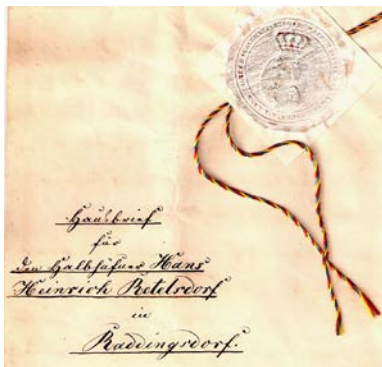 Hausbrief
für
den Halbhüfner Hans
Heinrich Retelsdorf
in
Raddingsdorf.